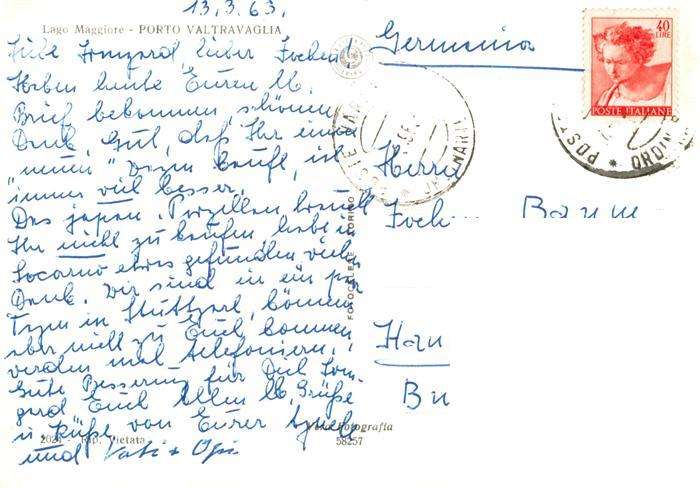 13.3.63.
Lago Maggiore - PORTO VALTRAVAGLIA
Liebe Irmgard, lieber Jochen!
Haben heute Euren lb.
Brief bekommen, schönen
Dank. Gut, daß Ihr einen
"neuen" Wagen kauft, ist
immer viel besser.
Das japan. Porzellan braucht
Ihr nicht zu kaufen, habe in
Locarno etwas gefunden vielen
Dank. Wir sind in ein paar
Tagen in Stuttgart, können
aber nicht zu Euch kommen
werden mal telefonieren.
Gute Besserung für Dich Irm-
gard Euch Allen lb. Grüße
u. Küße von Eurer
und Vati + Opi
Germania
40
LIRE
POSTE ITALIANE
Herrn
Joch Baum
Han
Bu
FOTOCELERE TORINO
Vera Fotografia
58257
202 Rip. Vietata